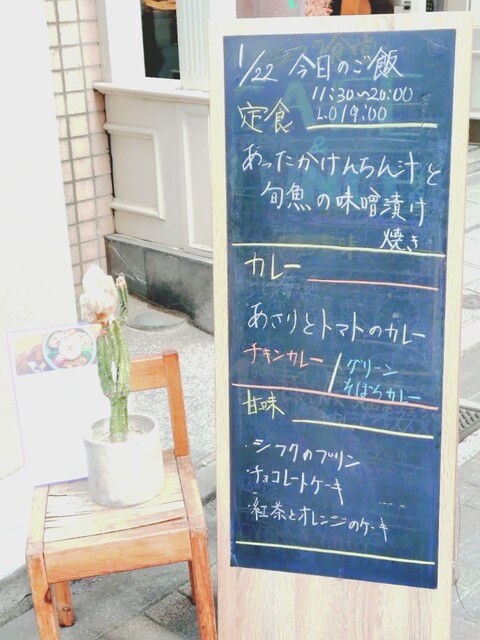 1/22 今日のご飯
11:30〜20:00
定食 L.O19:00
あったかけんちん汁と
旬魚の味噌漬け
焼き
カレー
あさりとトマトのカレー
チキンカレー / グリーン
そぼろカレー
甘味
・シフクのプリン
・チョコレートケーキ
・紅茶とオレンジのケーキ